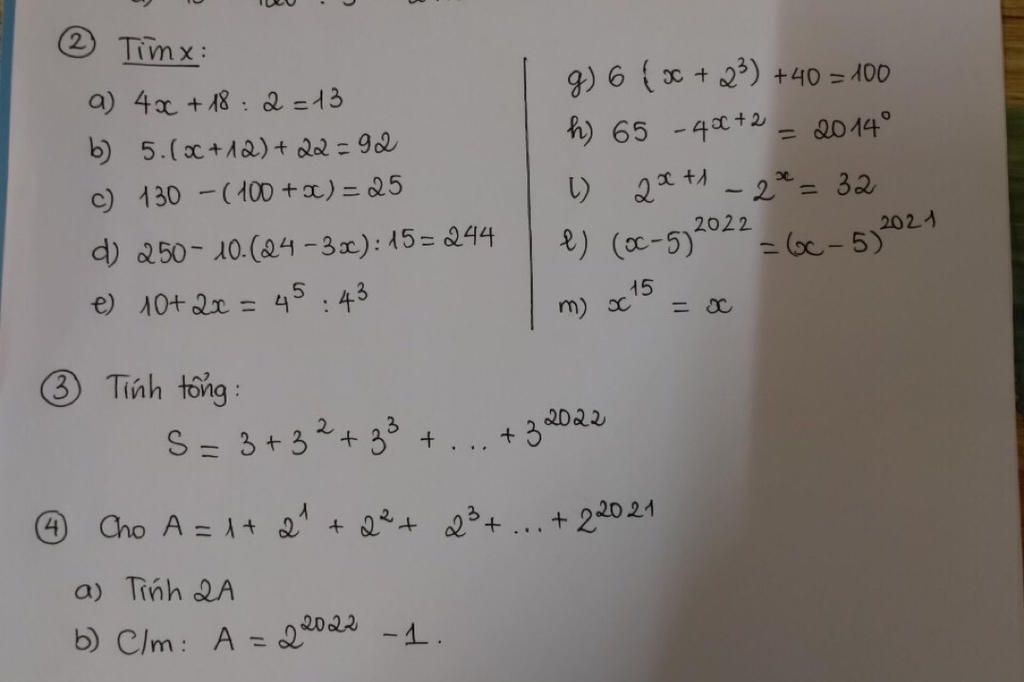 ② Tìm x:
a) 4x + 18 : 2 = 13
b) 5.(x+12) + 22 = 92
c) 130 - (100 + x) = 25
d) 250 - 10.(24 - 3x) : 15 = 244
e) 10 + 2x = 4⁵ : 4³
g) 6 (x + 2³) + 40 = 100
h) 65 - 4ˣ⁺² = 2014⁰
i) 2ˣ⁺¹ - 2ˣ = 32
l) (x-5)²⁰²² = (x-5)²⁰²¹
m) x¹⁵ = x
③ Tính tổng:
S = 3 + 3² + 3³ + ... + 3²⁰²²
④ Cho A = 1 + 2¹ + 2² + 2³ + ... + 2²⁰²¹
a) Tính 2A
b) C/m: A = 2²⁰²² - 1.